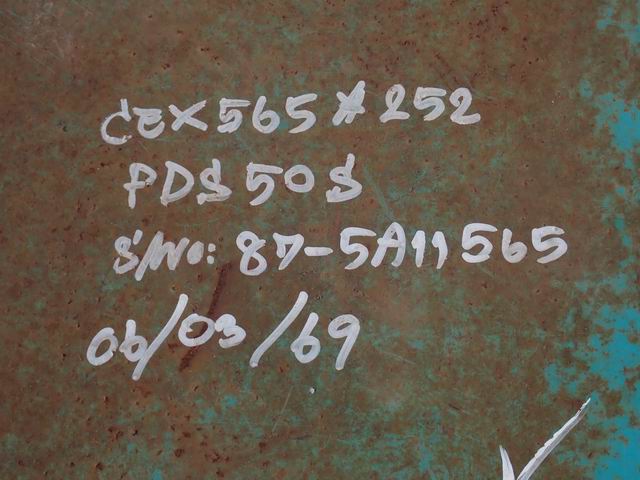 CEX565#252
PDS50S
S/No: 87-5A11565
06/03/69